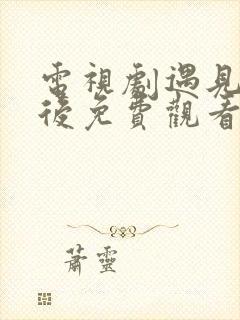 電視劇遇見
後免費觀看
蕭靈